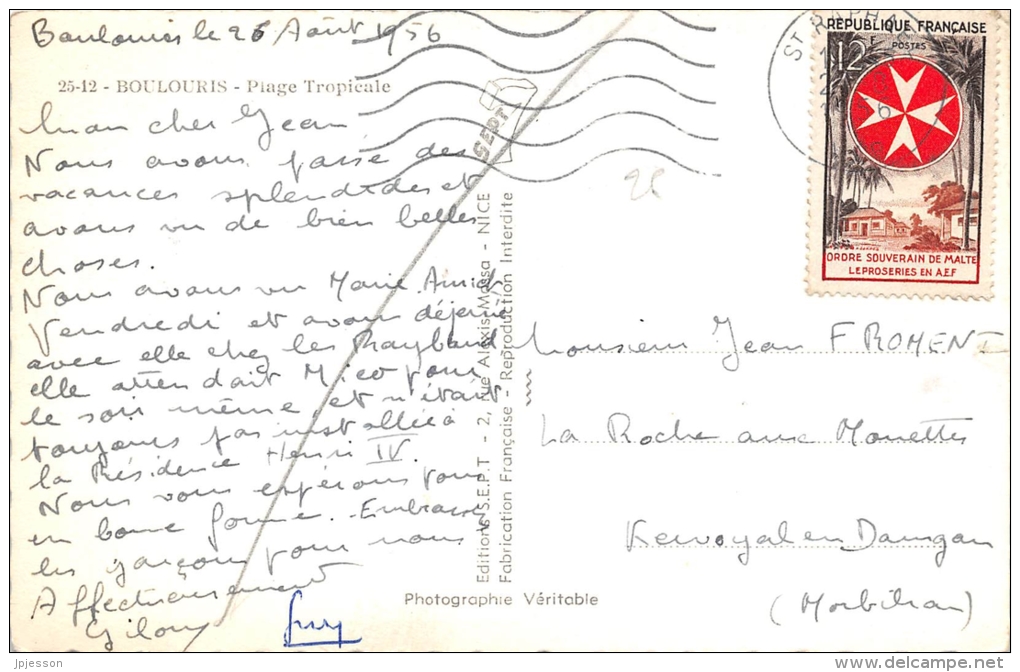 Boulouris le 26 Août 1956
25-12 - BOULOURIS - Plage Tropicale
Mon cher Jean
Nous avons passé des
vacances splendides et
avons vu de bien belles
choses.
Nous avons vu Marie
Vendredi et avons déjeuné
avec elle chez les Raybaud
elle attendait Mico pour
le soir même, et n'était
toujours pas installée à
la Résidence Henri IV.
Nous vous espérons tous
en bonne forme. Embrasse
les garçons pour nous
Affectueusement
Guy
SEPT
Editions S.E.P.T - 2, rue Alexis Mossa - NICE
Fabrication Française - Reproduction Interdite
Photographie Véritable
ST RAPHA
REPUBLIQUE FRANÇAISE
12F POSTES
ORDRE SOUVERAIN DE MALTE
LEPROSERIES EN A.E.F
Monsieur Jean FROMENT
La Roche aux Mouettes
Kervoyal en Damgan
(Morbihan)
jpjesson
www.delcampe.net